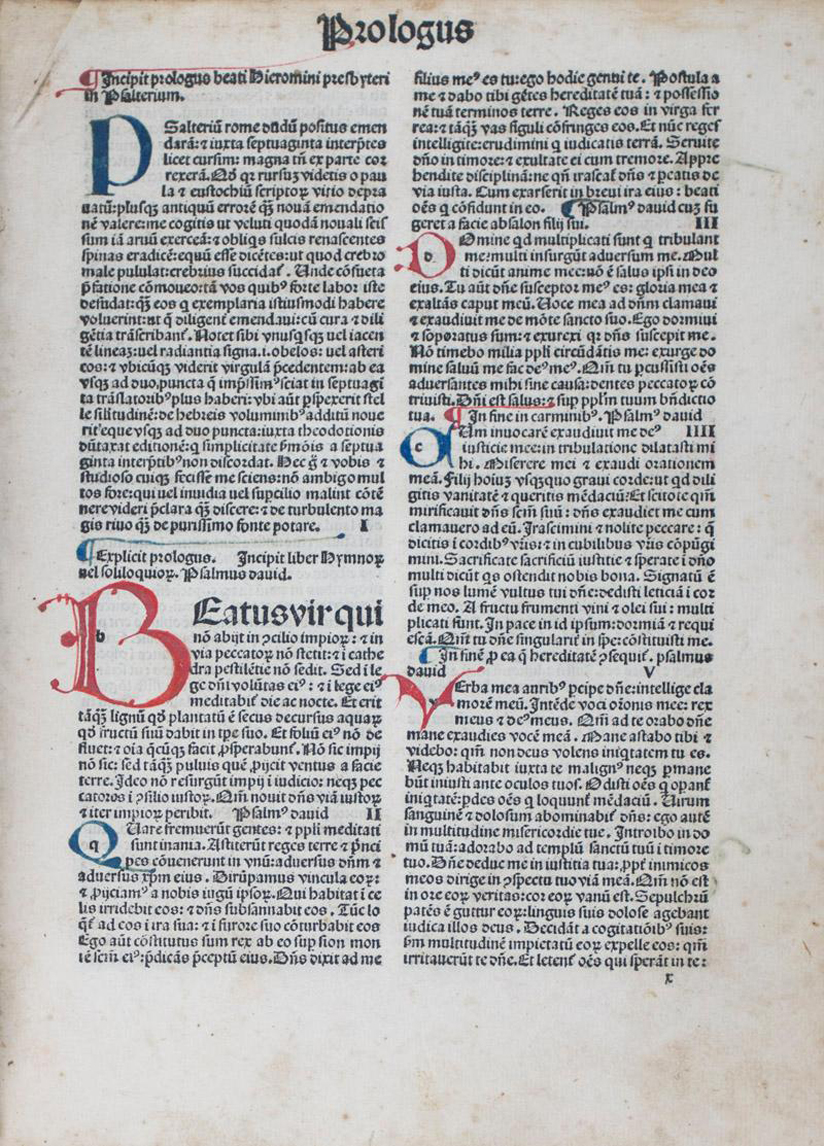 Prologus
¶ Incipit prologus beati Hieromini presbyteri
in Psalterium.
PSalteriū rome dudū positus emen
darā: ⁊ iuxta septuaginta interp̄tes
licet cursim: magna tn̄ ex parte cor
rexerā. Qd̓ qr rursuʒ videtis o pau
la ⁊ eustochiū scriptoꝝ vitio depra
uatū: plusqʒ antiquū errorē qʒ nouā emendatio
nē valere: me cogitis vt veluti quodā nouali scis
sum iā aruū exerceā: ⁊ obliqs sulcis renascentes
spinas eradicē: equū esse dicētes: ut quod crebro
male pululat: crebrius succidat̄. Unde cōsueta
p̄fatione cōmoueo: tā vos quibꝰ forte labor iste
desudat: qʒ eos q exemplaria istiusmodi habere
voluerint: ut q diligent̄ emendaui: cū cura ⁊ dili
gētia trāscribant̄. Notet sibi vnusqsqʒ uel iacen
tē lineaʒ: uel radiantia signa .i. obelos: uel asteri
cos: ⁊ vbicūqʒ viderit virgulā p̄cedentem: ab ea
vsqʒ ad duo, puncta q impssimꝰ sciat in septuagi
ta trāslatoribꝰ plus haberi: vbi aūt ꝑspexerit stel
le silitudinē: de hebreis voluminibꝰ additū noue
rit eque vsqʒ ad duo puncta: iuxta theodotionis
dūtaxat editionē: q simplicitate ẜmōis a septua
ginta interp̄tibꝰ non discordat. Hec g̈ ⁊ vobis ⁊
studioso cuiqʒ fecisse me sciens: nō ambigo mul
tos fore: qui uel inuidia uel suꝑcilio malint cōtē
nere videri p̄clara qʒ discere: ⁊ de turbulento ma
gis riuo qʒ de purissimo fonte potare. I
¶ Explicit prologus. Incipit liber Hymnoꝝ
uel soliloquioꝝ. Psalmus dauid.
BEatus vir qui
nō abijt in ↄcilio impioꝝ: ⁊ in
via peccatoꝝ nō stetit: ⁊ ī cathe
dra pestilētie nō sedit. Sed ī le
ge dn̄i volūtas eiꝰ: ⁊ ī lege eiꝰ
meditabit̄ die ac nocte. Et erit
tāqʒ lignū qd̓ plantatū ē secus decursus aquaꝝ
qd̓ fructū suū dabit in tꝑe suo. Et foliū eiꝰ nō de
fluet: ⁊ oīa qcūqʒ facit ꝓsperabunt̄. Nō sic impij
nō sic: sed tāqʒ puluis quē ꝓijcit ventus a facie
terre. Ideo nō resurgūt impij ī iudicio: neqʒ pec
catores ī ↄsilio iustoꝝ. Qm̄ nouit dn̄s viā iustoꝝ
⁊ iter impioꝝ peribit. Psalmꝰ dauid II
QUare fremuerūt gentes: ⁊ ppl̄i meditati
sunt inania. Astiterūt reges terre ⁊ p̄nci
pes cōuenerunt in vnū: aduersus dn̄m ⁊
aduersus xp̄m eius. Dirūpamus vincula eoꝝ:
⁊ ꝓijciamꝰ a nobis iugū ipsoꝝ. Qui habitat ī ce
lis irridebit eos: ⁊ dn̄s subsannabit eos. Tūc lo
qt̄ ad eos ī ira sua: ⁊ ī furore suo cōturbabit eos
Ego aūt cōstitutus sum rex ab eo suꝑ sion mon
tē scm̄ eiꝰ: p̄dicās p̄ceptū eius. Dn̄s dixit ad me
filius meꝰ es tu: ego hodie genui te. Postula a
me ⁊ dabo tibi gētes hereditatē tuā: ⁊ possessio
nē tuā terminos terre. Reges eos in virga fer
rea: ⁊ tāqʒ vas figuli cōfringes eos. Et nūc reges
intelligite: erudimini q iudicatis terrā. Seruite
dn̄o in timore: ⁊ exultate ei cum tremore. Appre
hendite disciplinā: ne qn̄ irascat̄ dn̄s ⁊ ꝑeatis de
via iusta. Cum exarserit in breui ira eius: beati
oēs q cōfidunt in eo. ¶ Psalmꝰ dauid cuʒ fu
geret a facie absalon filij sui. III
DOmine qd multiplicati sunt q tribulant
me: multi insurgūt aduersum me. Mul
ti dicūt anime mee: nō ē salus ipsi in deo
eius. Tu aūt dn̄e susceptor meꝰ es: gloria mea ⁊
exaltās caput meū. Uoce mea ad dn̄m clamaui
⁊ exaudiuit me de mōte sancto suo. Ego dormiui
⁊ soporatus sum: ⁊ exurexi qr dn̄s suscepit me.
Nō timebo milia ppl̄i circūdātis me: exurge do
mine saluū me fac deꝰ meꝰ. Qm̄ tu ꝑcussisti oēs
aduersantes mihi sine causa: dentes peccatoꝝ cō
triuisti. Dn̄i est salus: ⁊ suꝑ ppl̄m tuum bn̄dictio
tua. ¶ In finē in carminibꝰ. Psalmꝰ dauid
CUm inuocarē exaudiuit me deꝰ IIII
iusticie mee: in tribulatione dilatasti mi
hi. Miserere mei ⁊ exaudi orationem
meā. Filij hoīuʒ vsqʒquo graui corde: ut qd dili
gitis vanitatē ⁊ queritis mēdaciū? Et scitote qm̄
mirificauit dn̄s scm̄ suū: dn̄s exaudiet me cum
clamauero ad eū. Irascimini ⁊ nolite peccare: q̄
dicitis ī cordibꝰ vr̄is: ⁊ in cubilibus vr̄is cōpūgi
mini. Sacrificate sacrificiū iustitie ⁊ sperate ī dn̄o
multi dicūt qs ostendit nobis bona. Signatū ē
suꝑ nos lumē vultus tui dn̄e: dedisti leticiā ī cor
de meo. A fructu frumenti vini ⁊ olei sui: multi
plicati sunt. In pace in id ipsum: dormiā ⁊ requi
escā. Qm̄ tu dn̄e singularit̄ in spe: cōstituisti me.
¶ In finē ꝓ ea q hereditatē ↄsequit̄. psalmus
dauid V
VErba mea auribꝰ ꝑcipe dn̄e: intellige cla
morē meū. Intēde voci or̄onis mee: rex
meus ⁊ deꝰ meus. Qm̄ ad te orabo dn̄e
mane exaudies vocē meā. Mane astabo tibi ⁊
videbo: qm̄ non deus volens iniqtatem tu es.
Neqʒ habitabit iuxta te malignꝰ neqʒ ꝑmane
būt iniusti ante oculos tuos. Odisti oēs q oꝑant̄
iniqtatē: ꝑdes oēs q loquunt̄ mēdaciū. Uirum
sanguinū ⁊ dolosum abominabit̄ dn̄s: ego autē
in multitudine misericordie tue. Introibo in do
mū tuā: adorabo ad templū sanctū tuū ī timore
tuo. Dn̄e deduc me in iustitia tua: ꝓpt̄ inimicos
meos dirige in ↄspectu tuo viā meā. Qm̄ nō est
in ore eoꝝ veritas: cor eoꝝ vanū est. Sepulchrū
patēs ē guttur eoꝝ: linguis suis dolose agebant
iudica illos deus. Decidāt a cogitatiōibꝰ suis:
ẜm multitudinē impietatū eoꝝ expelle eos: qm̄
irritauerūt te dn̄e. Et letent̄ oēs qui sperāt in te:
x